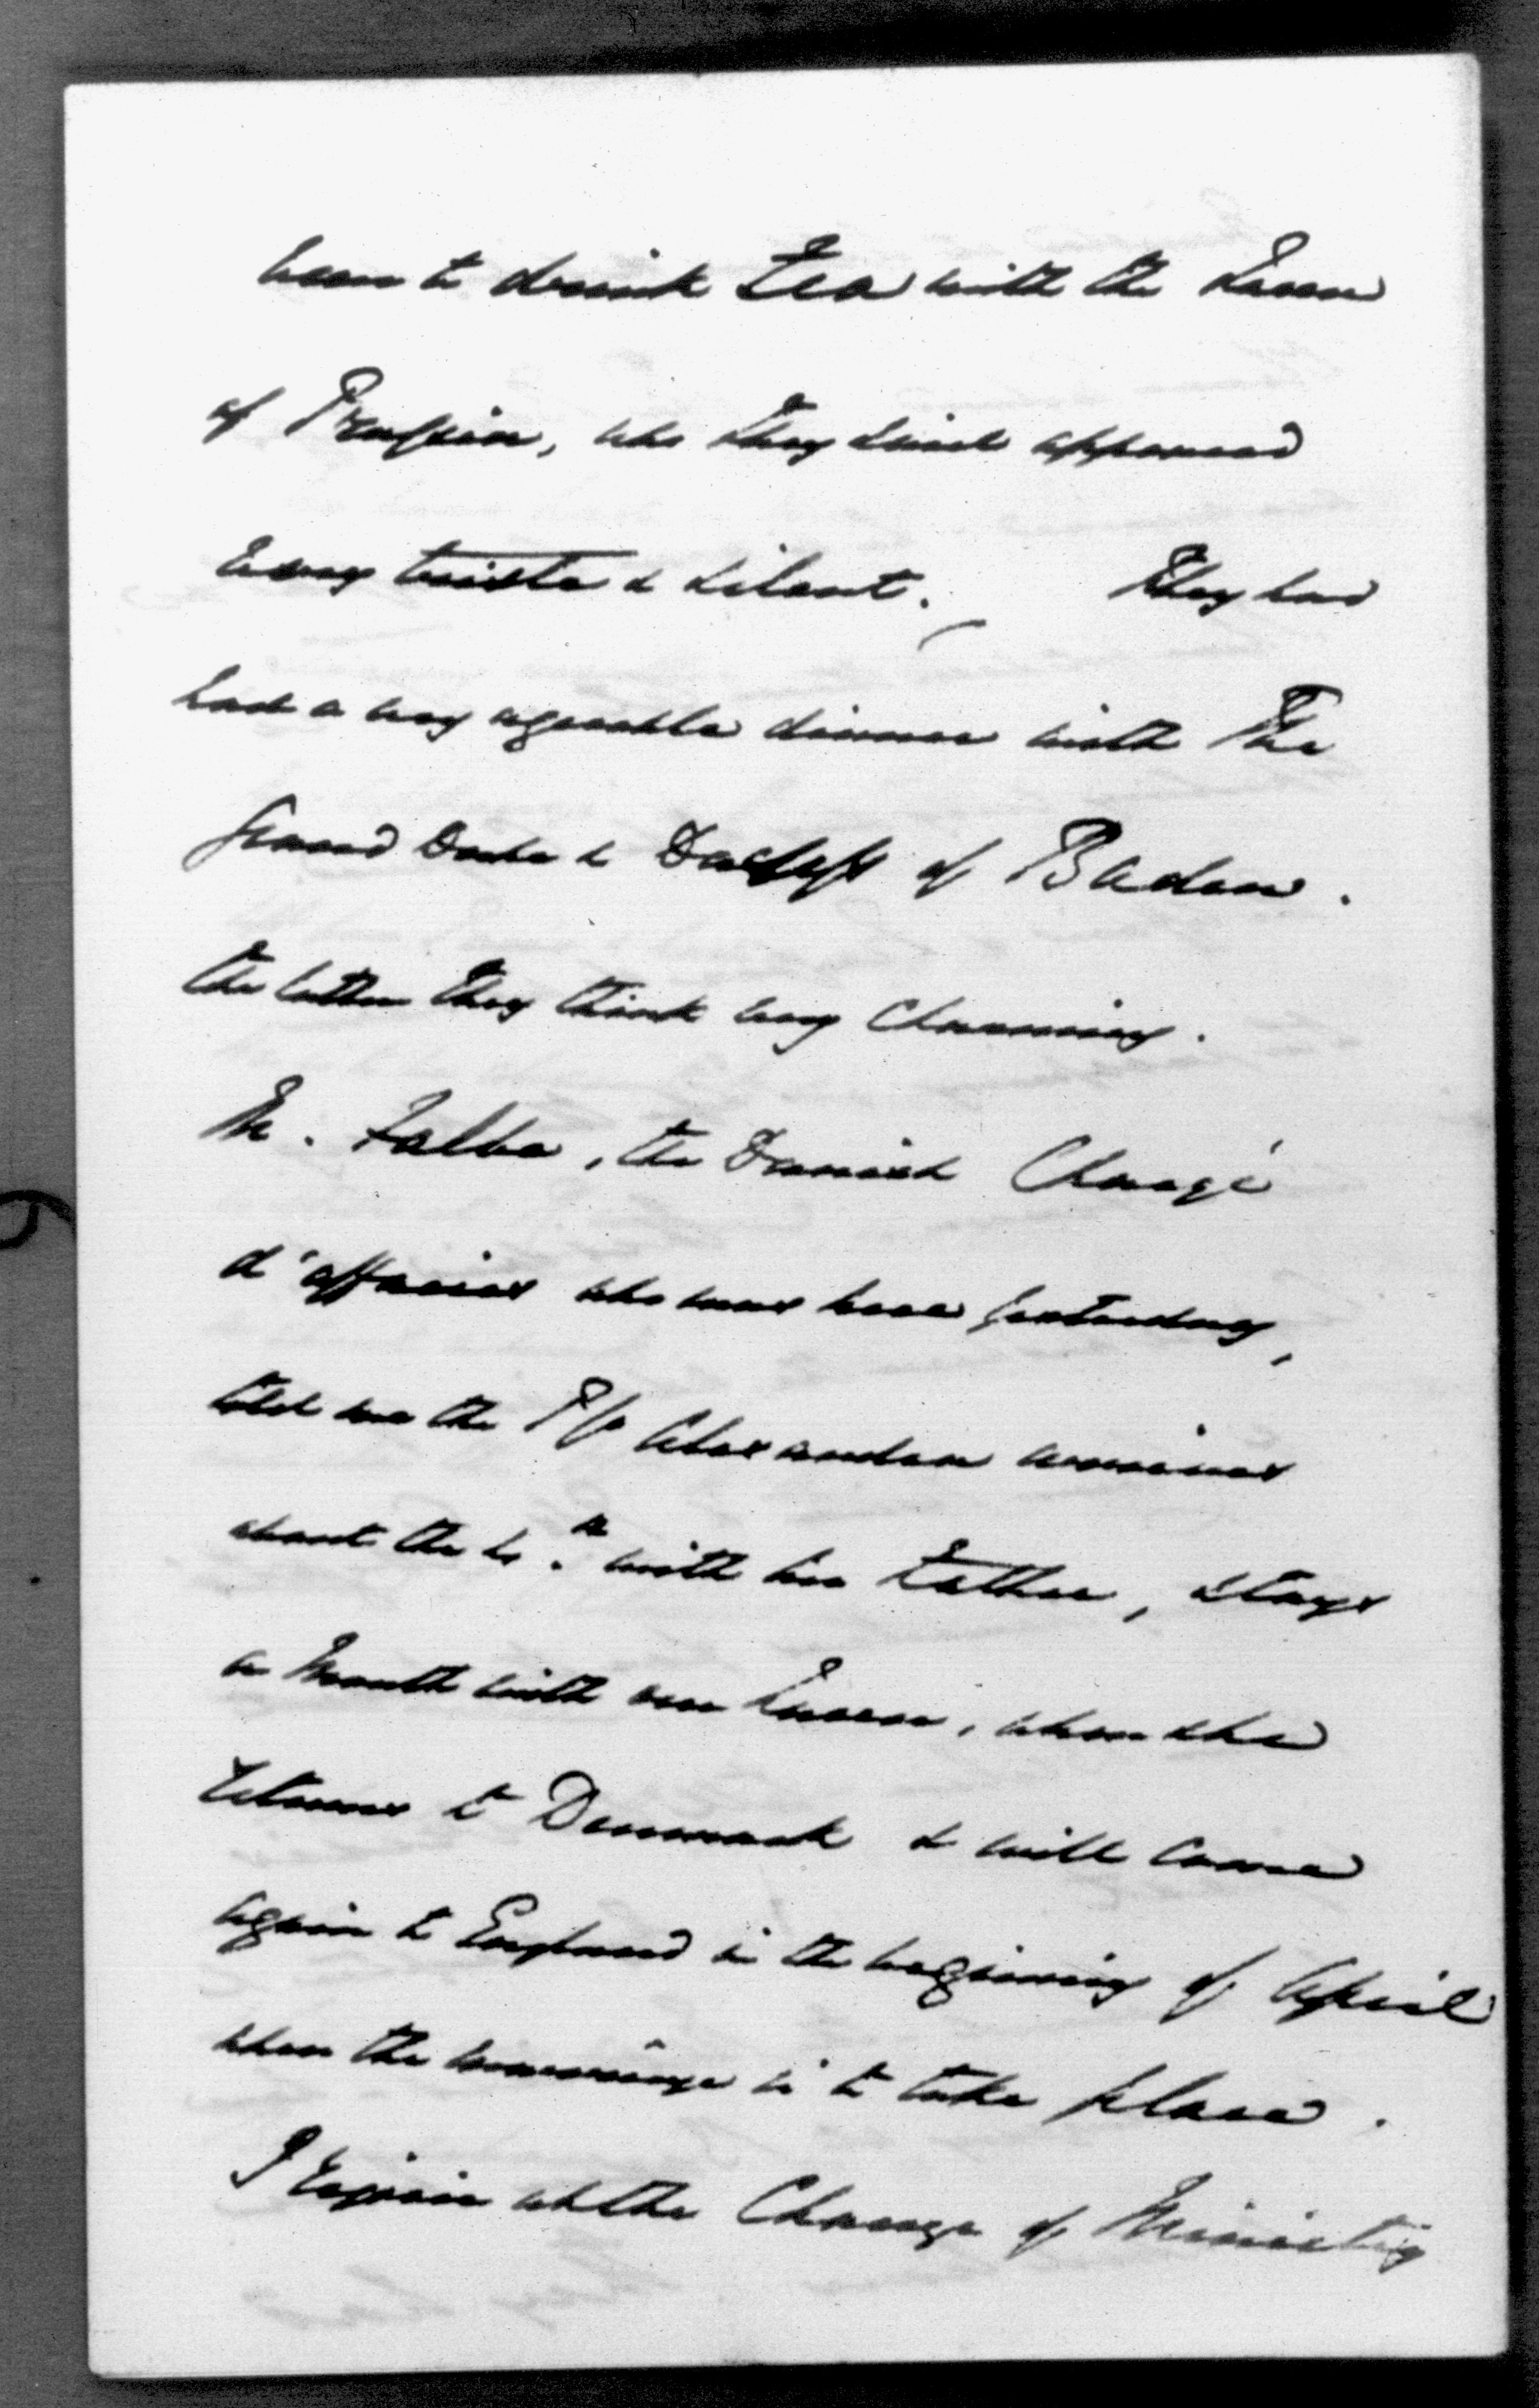 been to drink tea with the Queen
of Prussia, who they said appeared
very triste & silent. They had
had a very agreable dinner with the
Grand Duke & Duchess of Baden.
the latter they think very charming.
M. Falbe, the Danish Chargé
d'affaires who was here yesterday,
told me the Pss Alexandra arrives
about the with her Father, stays
a Month with our Queen, when she
returns to Denmark & will come
again to England in the beginning of April
when the marriage is to take place.
I rejoice at the Change of Ministry